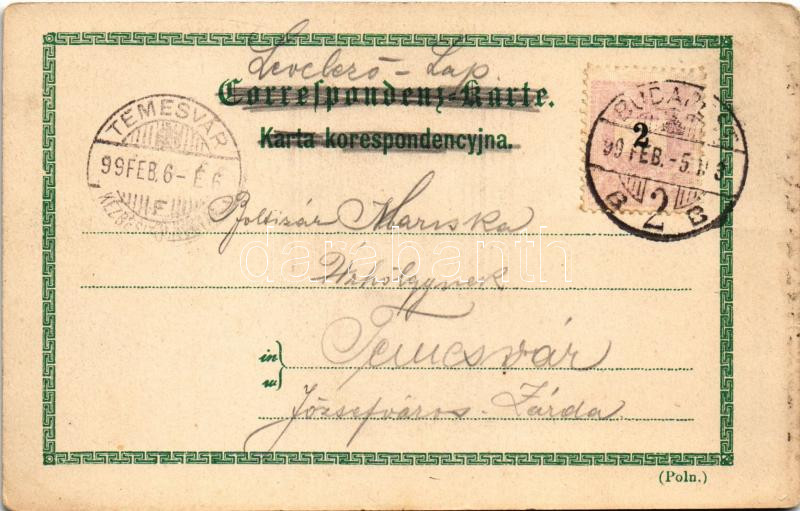 Levelező-Lap.
Correspondenz-Karte.
Karta korespondencyjna.
TEMESVÁR
99 FEB. 6 - É 6
F
BUDAPEST
2
99 FEB. - 5.
B 2 B
Mariska
Úrhölgynek
in
w
Temesvár
Józsefváros - Zárda
(Poln.)
darabanth